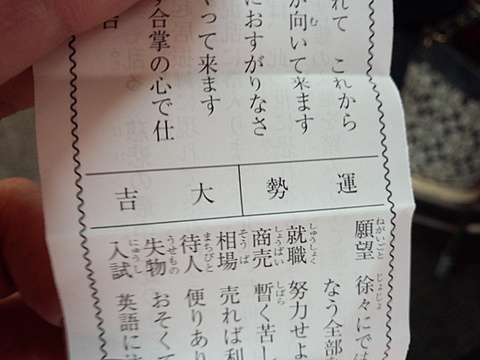 れて これから
が向いて来ます
におすがりなさ
やって来ます
合掌の心で仕
運勢
大吉
願望 徐々にでは
なう全部
就職 努力せよ
商売 暫く苦し
相場 売れば利
待人 便りあり
失物 おそくて
入試 英語に